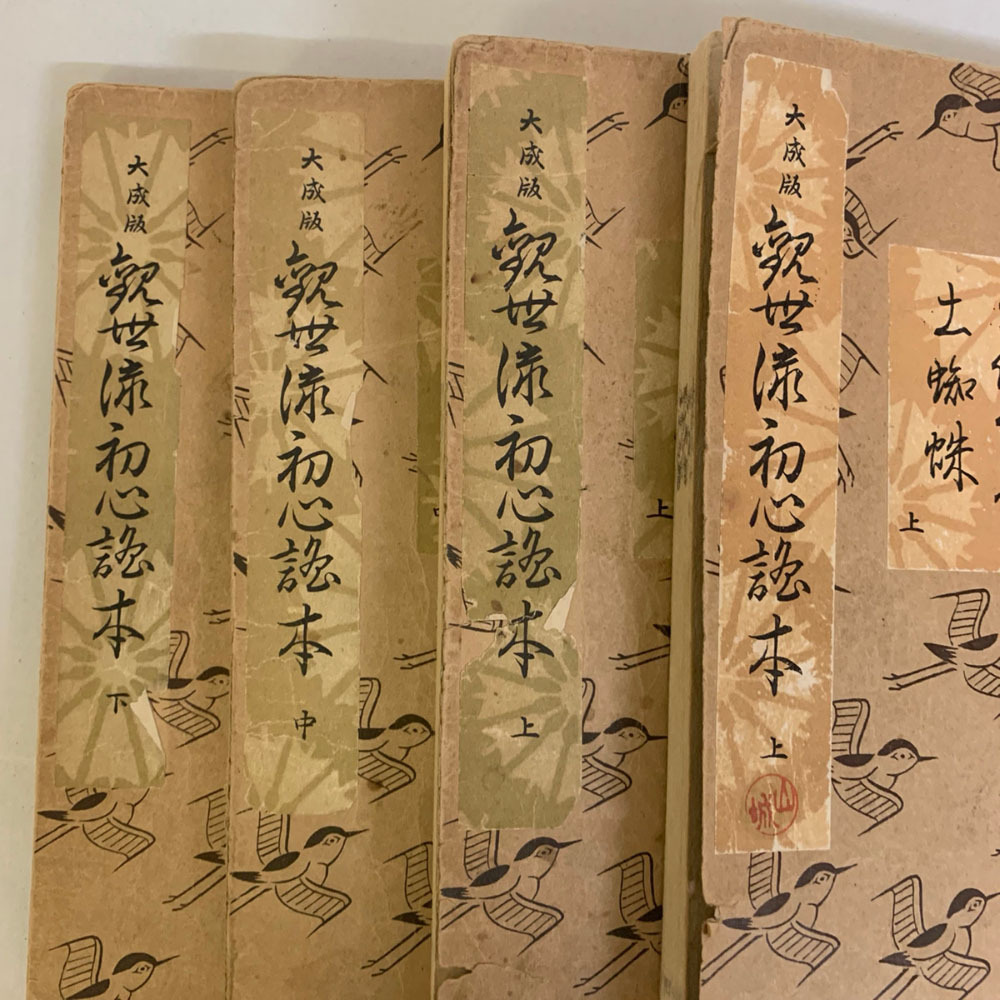 大成版 觀世流初心謠本 上
土蜘蛛
上
山城
大成版 觀世流初心謠本 上
上
大成版 觀世流初心謠本 中
大成版 觀世流初心謠本 下